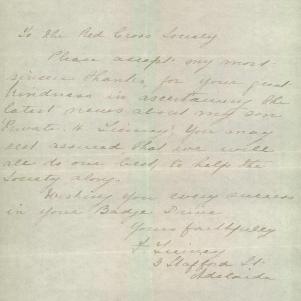 To the Red Cross Society
Please accept my most
sincere thanks for your great
kindness in ascertaining the
latest news about my son
Private H You may
rest assured that we will
all do our best to help the
Society along.
Wishing you every success
in your Badge Drive
Yours faithfully
H
3 Stafford St
Adelaide